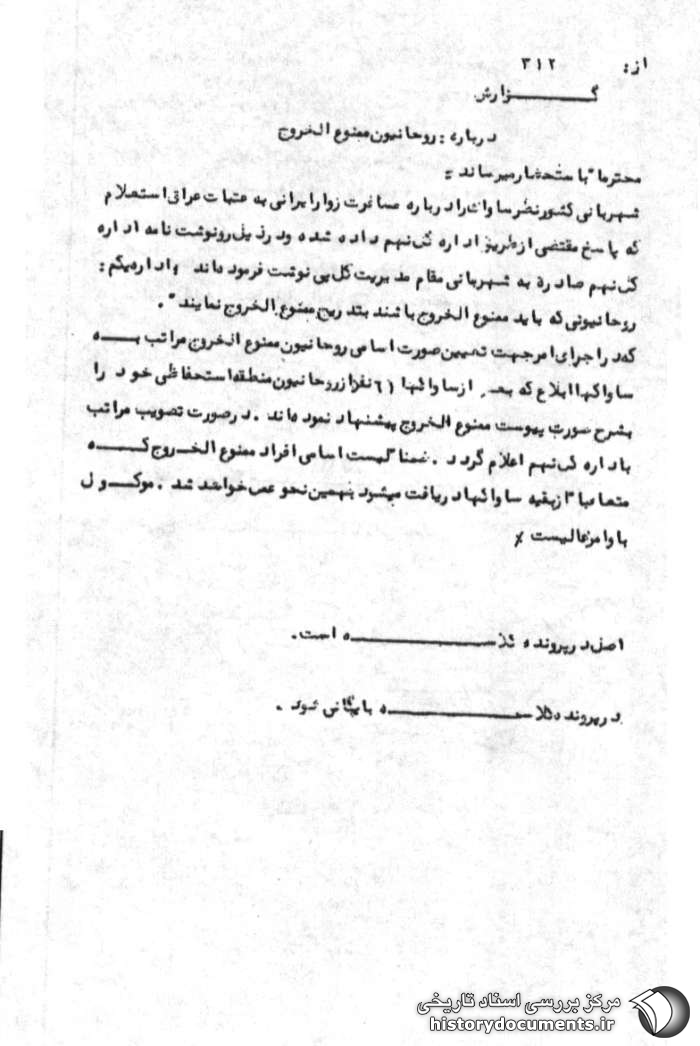 از: ۳۱۲
گزارش
درباره: روحانیون ممنوع الخروج
محترما باستحضار میرساند =
شهربانی کشور نظر ساواک را درباره مسافرت زوار ایرانی به عتبات عراق استعلام
که پاسخ مقتضی از طریق اداره کل نهم داده شده و در ذیل رونوشت نامه اداره
کل نهم صادره به شهربانی مقام مدیریت کل پی نوشت فرموده‌اند "اداره یکم:
روحانیونی که باید ممنوع الخروج باشند بتدریج ممنوع الخروج نمایند".
که در اجرای امر جهت تعیین صورت اسامی روحانیون ممنوع الخروج مراتب به
ساواکها ابلاغ که از ساواکها نفر از روحانیون منطقه استحفاظی خود را
بشرح صورت پیوست ممنوع الخروج پیشنهاد نموده‌اند. در صورت تصویب مراتب
باداره کل نهم اعلام گردد. ضمنا لیست اسامی افراد ممنوع الخروج که
متعاقبا از بقیه ساواکها دریافت میشود بهمین نحو عمل خواهد شد. موکول
باوامر عالیست
اصل در پرونده کلاسه است.
در پرونده کلاسه بایگانی شود.
مرکز بررسی اسناد تاریخی
historydocuments.ir